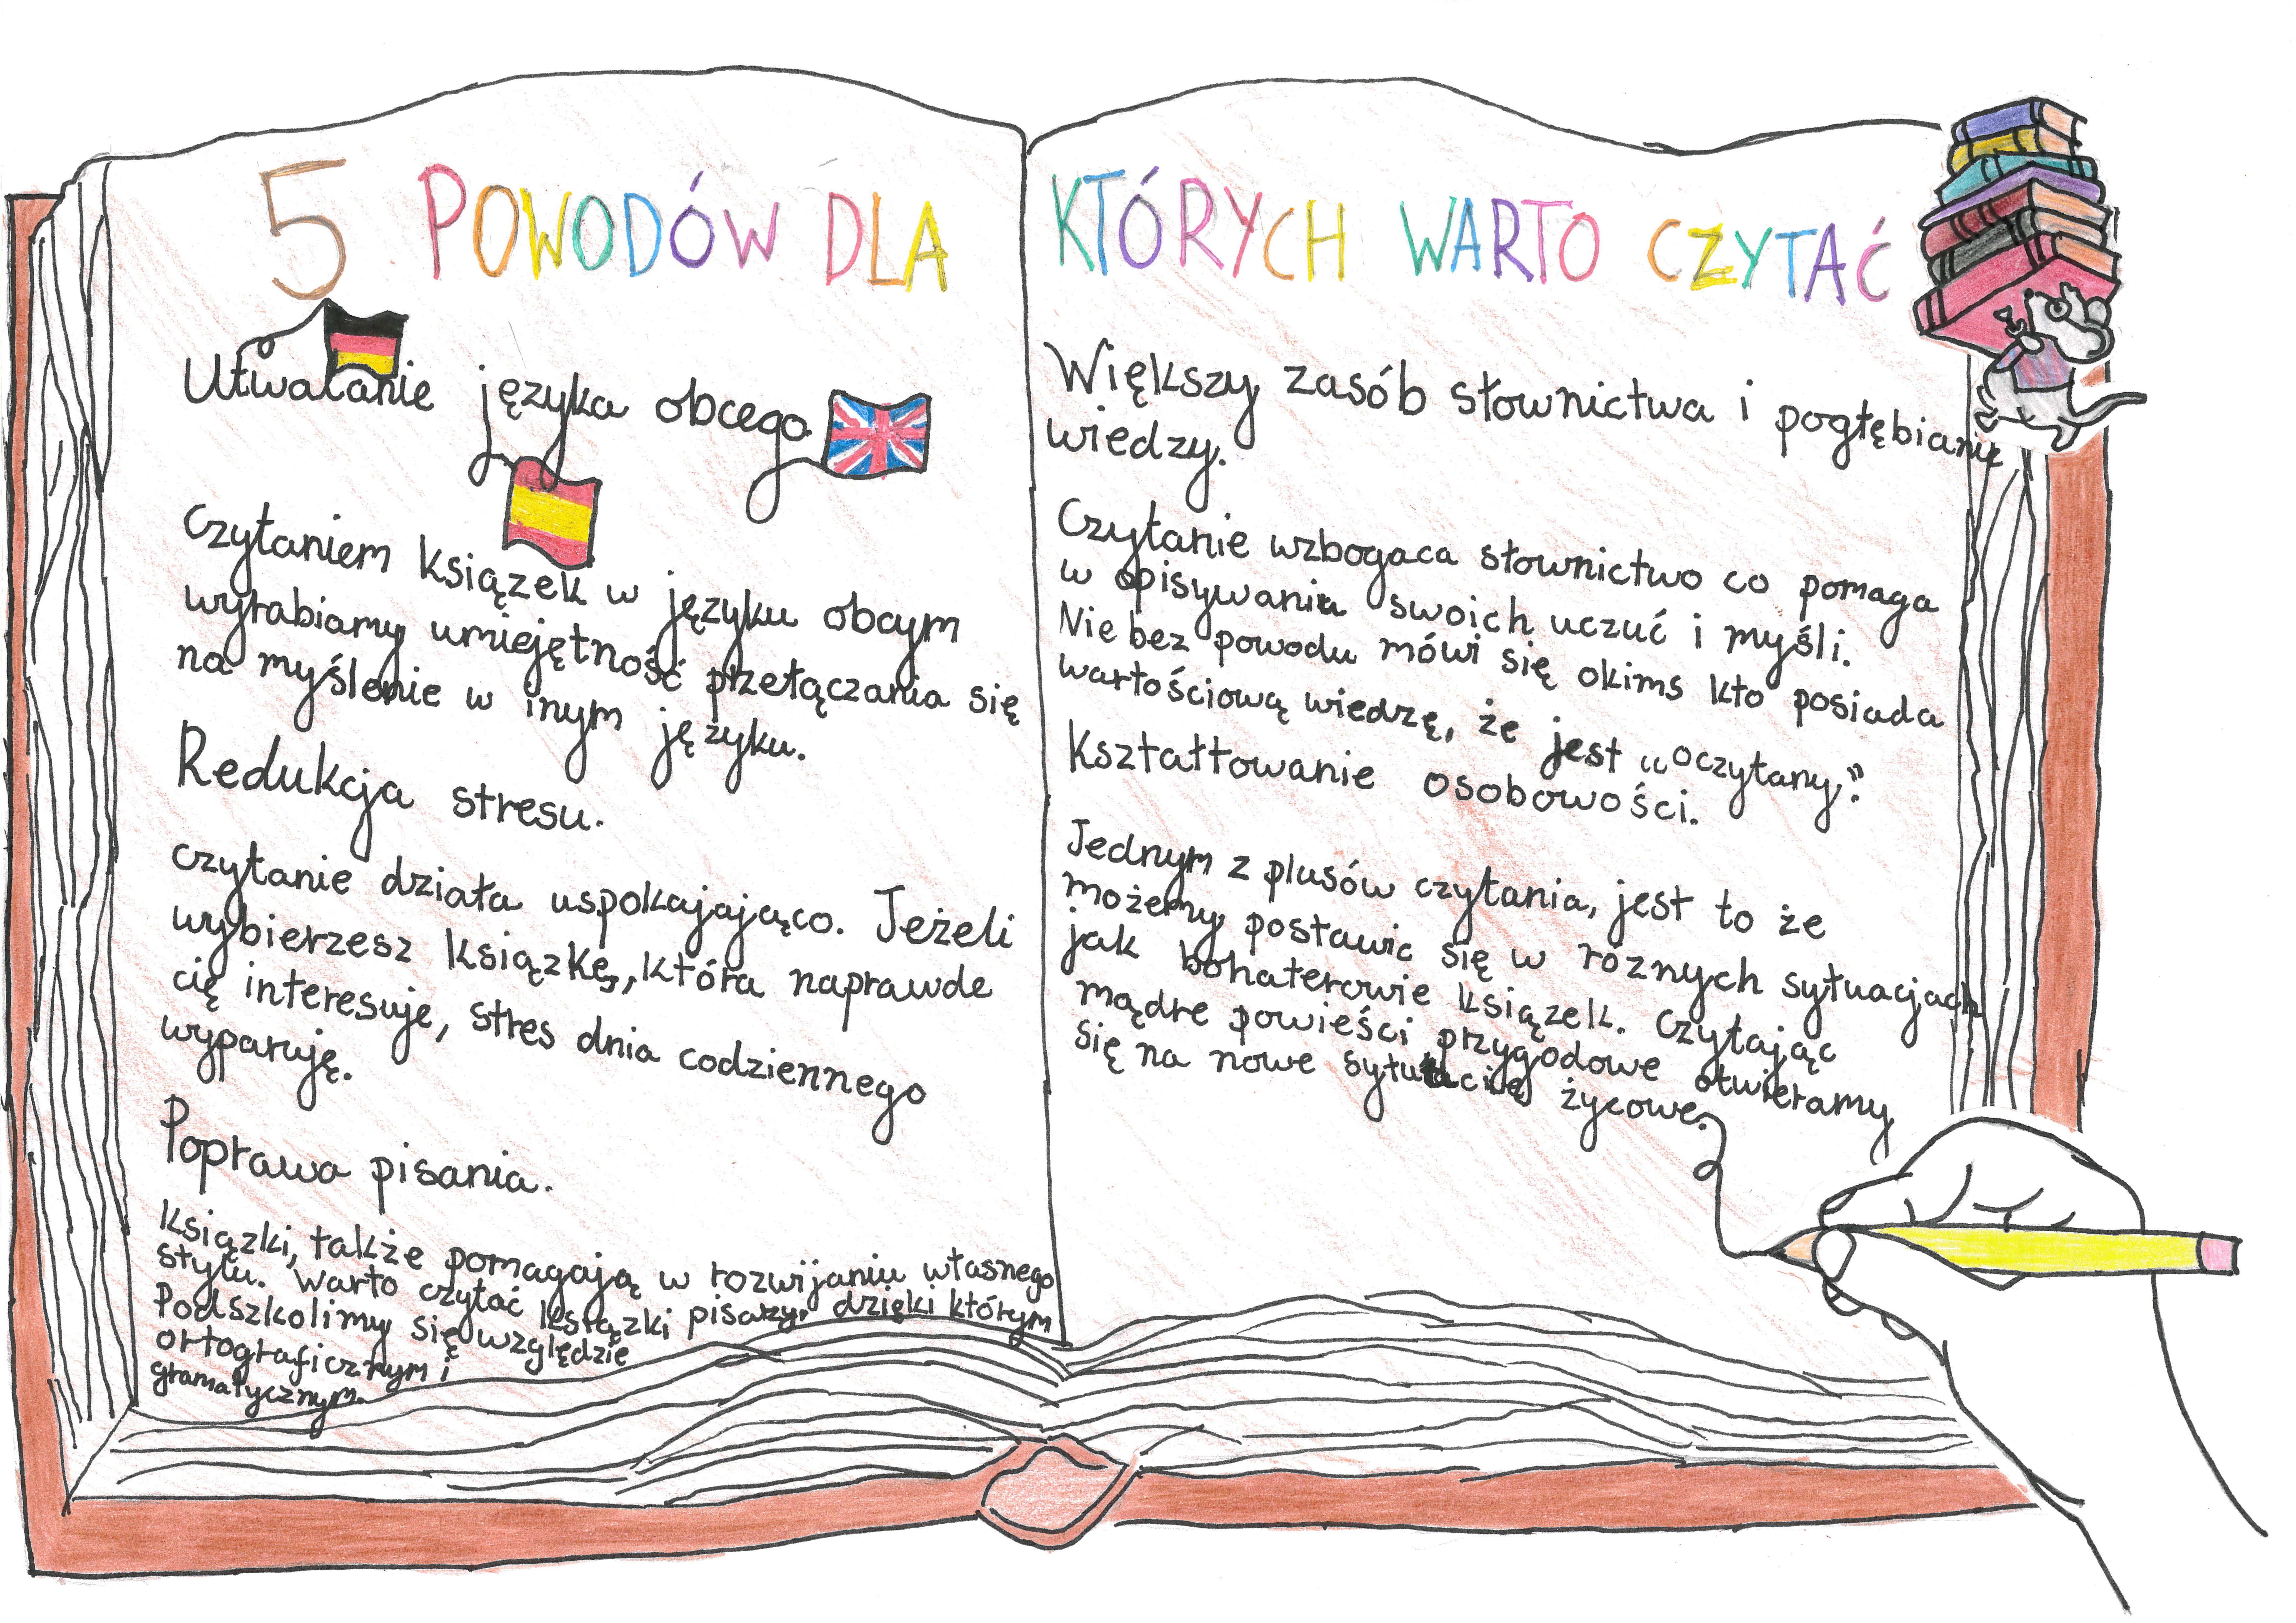 5 POWODÓW DLA KTÓRYCH WARTO CZYTAĆ
Utwalanie języka obcego.
Czytaniem książek w języku obcym
wyrabiamy umiejętność przełączania się
na myślenie w inym języku.
Redukcja stresu.
czytanie działa uspokajająco. Jeżeli
wybierzesz książkę, która naprawde
cię interesuje, stres dnia codziennego
wyparuję.
Poprawa pisania.
Książki, także pomagają w rozwijaniu własnego
stylu. Warto czytać książki pisazy, dzięki którym
Podszkolimy się względzie
ortograficznym i
gramatycznym.
Większy zasób słownictwa i pogłębianie
wiedzy.
Czytanie wzbogaca słownictwo co pomaga
w opisywaniu swoich uczuć i myśli.
Nie bez powodu mówi się okims kto posiada
wartościową wiedzę, że jest „oczytany".
Kształtowanie osobowości.
Jednym z plusów czytania, jest to że
możemy postawic się w roznych sytuacjach
jak bohaterowie książek. Czytając
mądre powieści przygodowe otwieramy
się na nowe życowe.